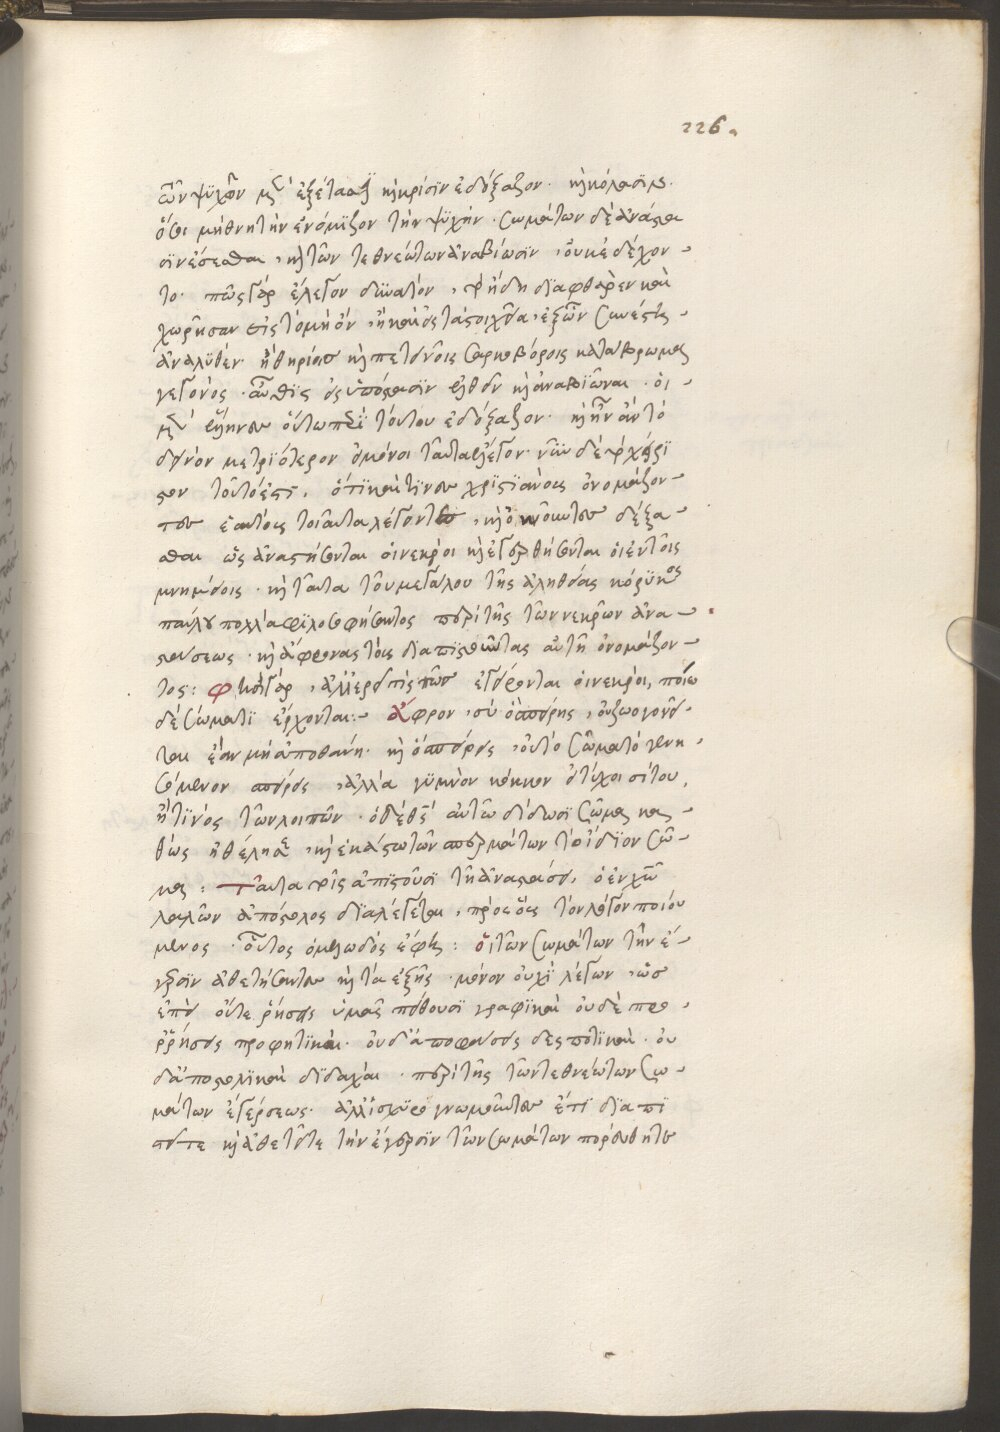 226.
τῶν ψυχῶν μὲν ἐξέτασιν κỳ κρίσιν ἐδόξαζον. κỳ κόλασιν.
ὅσοι μὴ θνητὴν ἐνόμιζον τὴν ψυχήν. σωμάτων δὲ ἀνάστα
σιν ἔσεσθαι, κỳ τῶν τεθνεώτων ἀναβίωσιν, οὐκ ἐδέχον-
το. πῶς γὰρ ἔλεγον δυνατὸν, τὸ ἤδη διαφθαρὲν καὶ
χωρῆσαν εἰς τὸ μὴ ὂν, ἢ καὶ εἰς τὰ στοιχεῖα, ἐξ ὧν συνέστη
ἀναλυθὲν. ἢ θηρίοις κỳ πετεινοῖς σαρκοβόροις κατάβρωμα
γεγονὸς. αὖθις εἰς ὑπόστασιν ἐλθεῖν κỳ ἀναβιῶναι. οἱ
μὲν ἕλληνες οὕτω περὶ τούτου ἐδόξαζον. κỳ ἦν ἂν τὸ
δεινὸν μετριότερον εἰ μόνοι ταῦτα ἔλεγον. νῦν δὲ τὸ χεῖρι
στον τοῦτό ἐστι, ὅτι καὶ τινες χριστιανοὺς ὀνομάζον-
τες ἑαυτοὺς τοιαῦτα λέγοντες, κỳ ὀκνοῦντες δέξα-
σθαι ὡς ἀναστήσονται οἱ νεκροὶ κỳ ἐγερθήσονται οἱ ἐν τοῖς
μνημείοις. κỳ ταῦτα τοῦ μεγάλου τῆς ἀληθείας κήρυκος
παύλου πολλὰ φιλοσοφήσαντος περὶ τῆς τῶν νεκρῶν ἀνα-
στάσεως. κỳ ἄφρονας τοὺς διαπιστοῦντας αὐτῇ ὀνομάζον-
τος: φησὶ γὰρ, ἀλλ' ἐρεῖ τὶς πῶς ἐγείρονται οἱ νεκροὶ, ποίῳ
δὲ σώματι ἔρχονται:- ἄφρον, σὺ ὃ σπείρεις, οὐ ζωογονεῖ-
ται ἐὰν μὴ ἀποθάνῃ. κỳ ὃ σπείρεις, οὐ τὸ σῶμα τὸ γενη-
σόμενον σπείρεις, ἀλλὰ γυμνὸν κόκκον εἰ τύχοι σίτου,
ἤ τινος τῶν λοιπῶν. ὁ δὲ θεὸς αὐτῷ δίδωσι σῶμα κα-
θὼς ἠθέλησε, κỳ ἑκάστῳ τῶν σπερμάτων τὸ ἴδιον σῶ-
μα: Ταῦτα τοῖς ἀπιστοῦσι τῇ ἀναστάσει, ὁ ἐν χῷ
λαλῶν ἀπόστολος διαλέγεται, πρὸς οὓς τὸν λόγον ποιού
μενος. οὗτος ὁ μελωδὸς ἔφη: οἱ τῶν σωμάτων τὴν ἔ-
γερσιν ἀθετήσαντες κỳ τὰ ἑξῆς. μόνον οὐχὶ λέγων, ὡς
ἐπεὶ οὔτε ῥήσεις ὑμᾶς πείθουσι γραφικαὶ οὐδὲ προ-
ρρήσεις προφητικαὶ. οὐδ' ἀποφάσεις δεσποτικαὶ. οὐ
δ' ἀποστολικαὶ διδαχαὶ. περὶ τῆς τῶν τεθνεώτων σω-
μάτων ἐγέρσεως. ἀλλ' ἰσχυρογνωμονοῦντες ἔτι διαπι
στεῖτε κỳ ἀθετεῖτε τὴν ἔγερσιν τῶν σωμάτων πορεύθητε